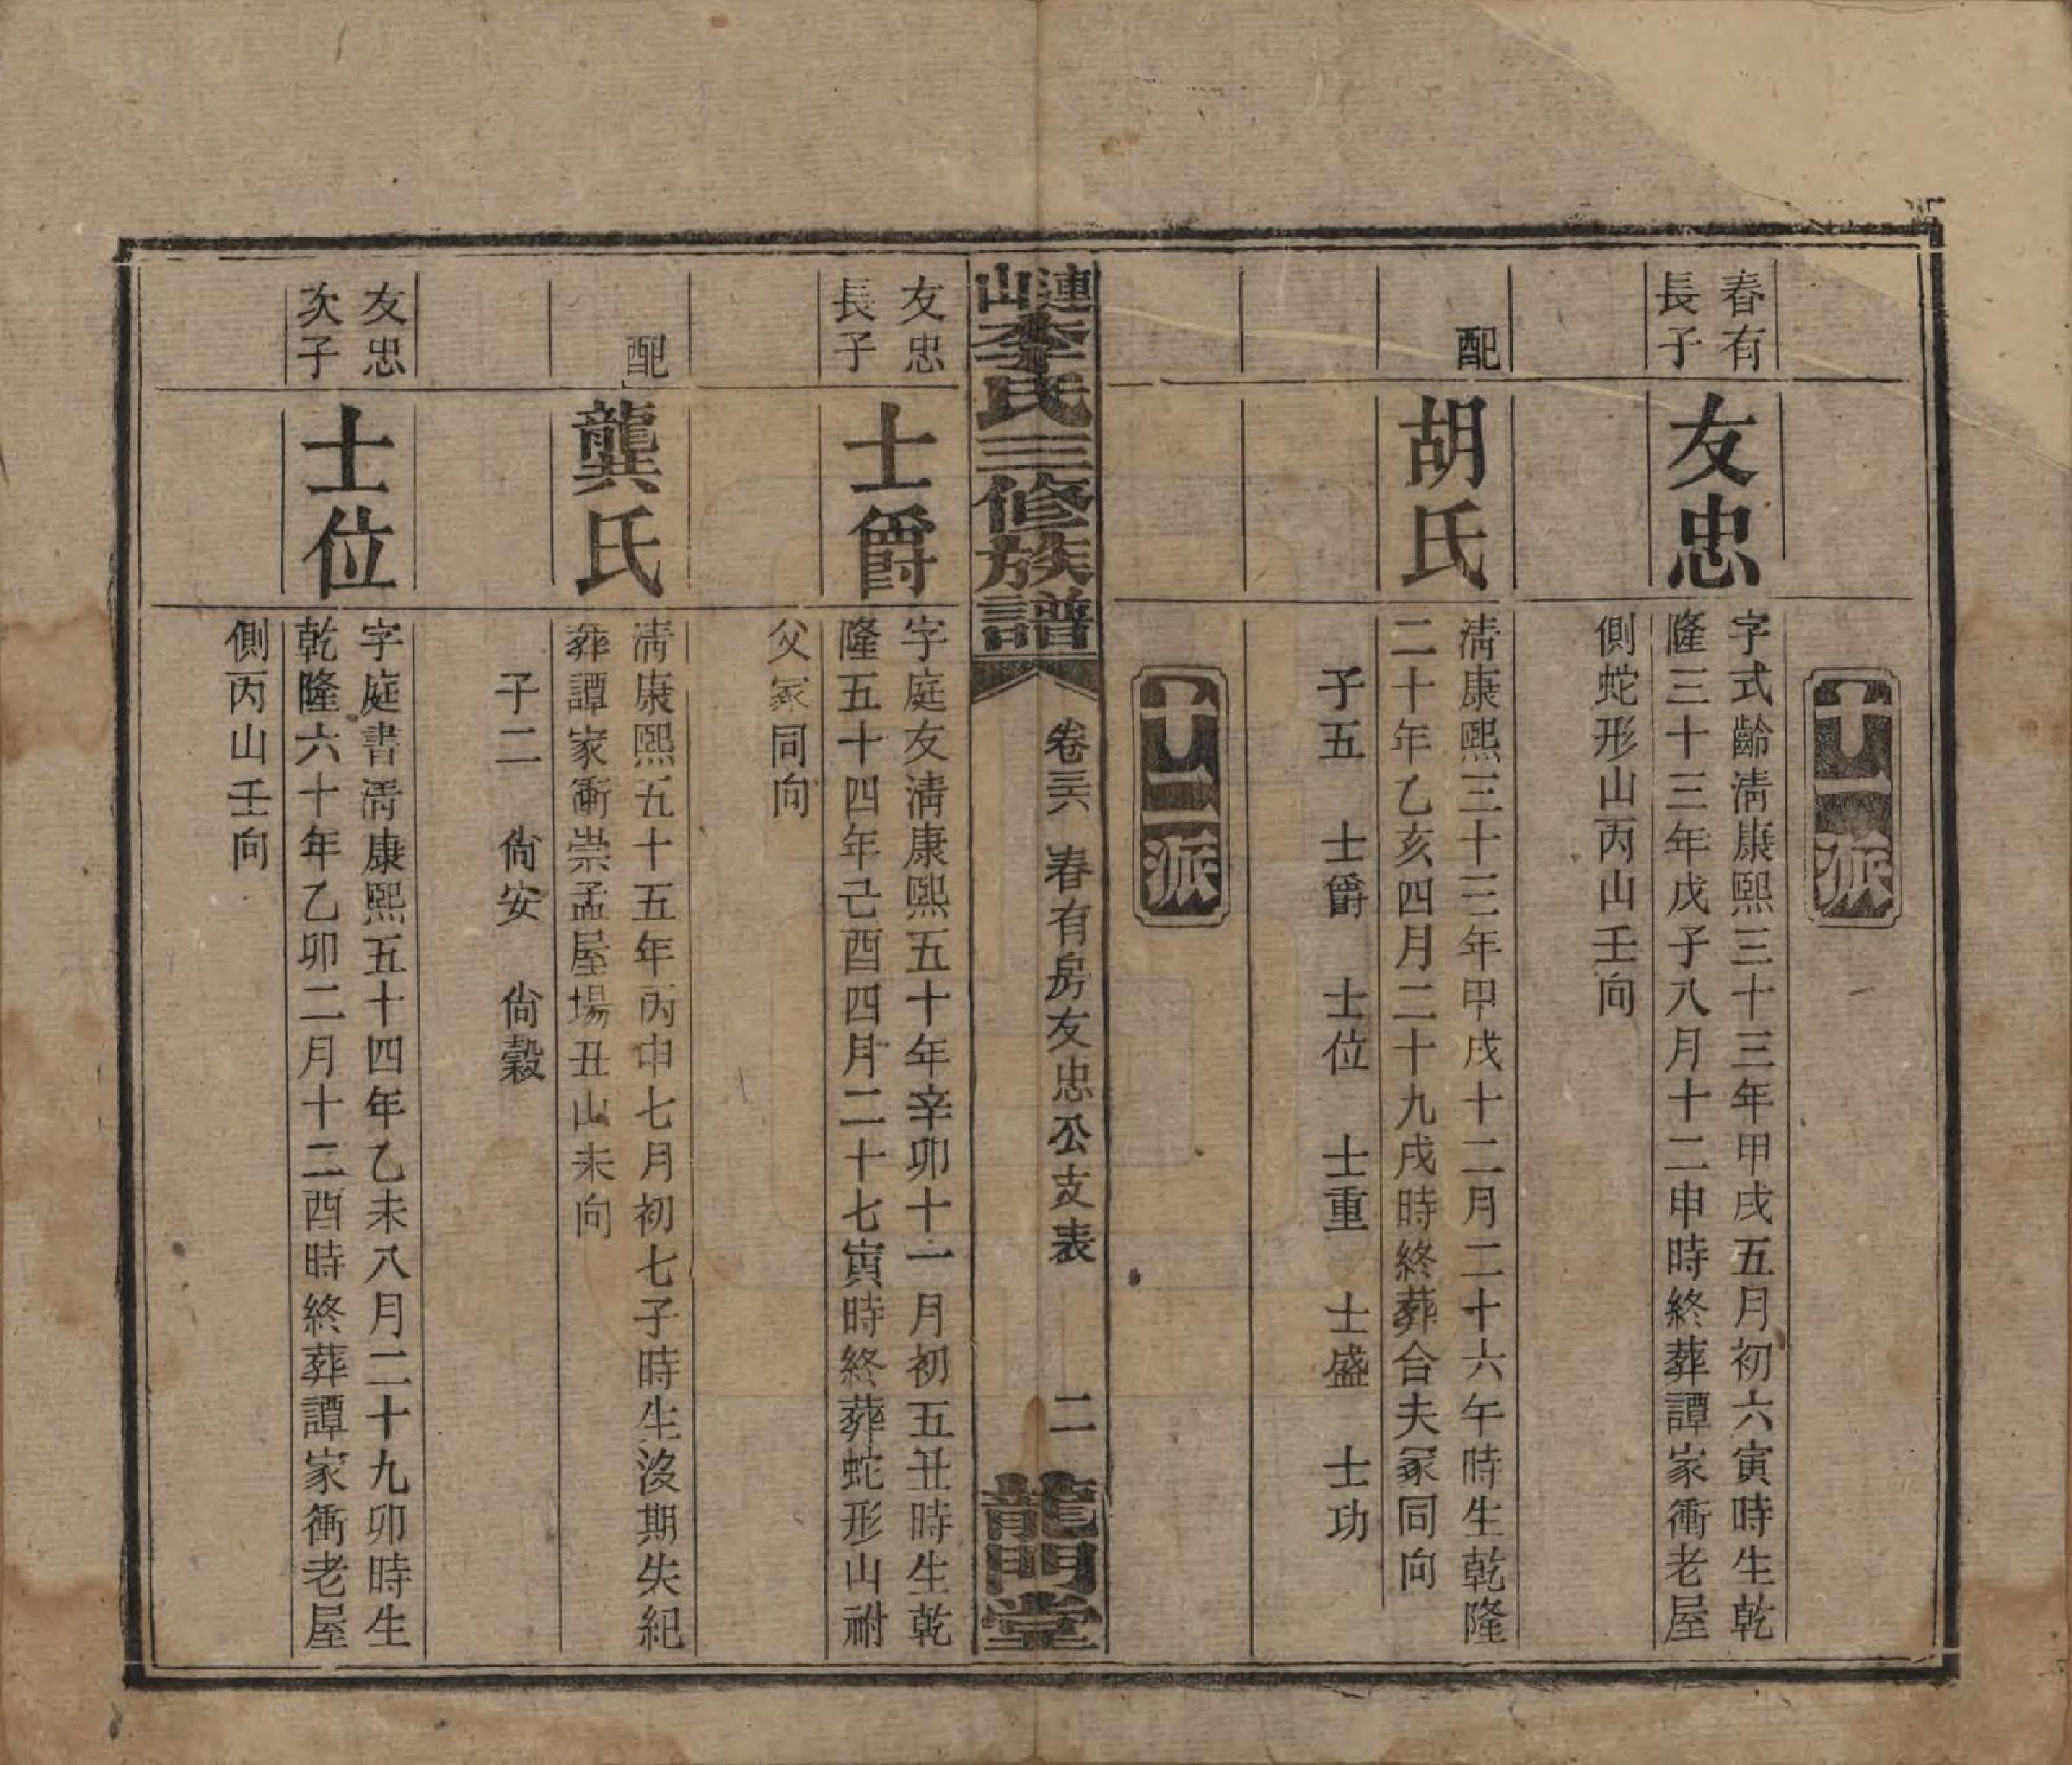 十一派
春有
長子
友忠
字式齡淸康熙三十三年甲戌五月初六寅時生乾
隆三十三年戊子八月十二申時終葬譚家衝老屋
側蛇形山丙山壬向
配
胡氏
淸康熙三十三年甲戌十二月二十六午時生乾隆
二十年乙亥四月二十九戌時終葬合夫冢同向
子五 士爵 士位 士重 士盛 士功
十二派
漣山李氏三修族譜
卷三六 春有房友忠公支表 二
龍門堂
友忠
長子
士爵
字庭友淸康熙五十年辛卯十一月初五丑時生乾
隆五十四年己酉四月二十七寅時終葬蛇形山祔
父冢同向
配
龔氏
淸康熙五十五年丙申七月初七子時生沒期失紀
葬譚家衝崇孟屋場丑山未向
子二 尙安 尙穀
友忠
次子
士位
字庭書淸康熙五十四年乙未八月二十九卯時生
乾隆六十年乙卯二月十二酉時終葬譚家衝老屋
側丙山壬向